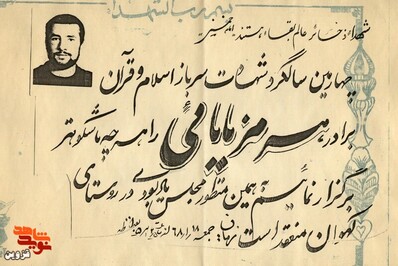 بسم رب الشهداء
شهدا ذخائر عالم بقاء هستند امام خمینی
چهارمین سالگرد شهادت سرباز اسلام و قرآن
برادر، هرمز بابائی را هر چه باشکوهتر
برگزار نمائیم به همین منظور مجلس یادبودی در روستای
منعقد است زمان جمعه
نوید شاهد
قزوین